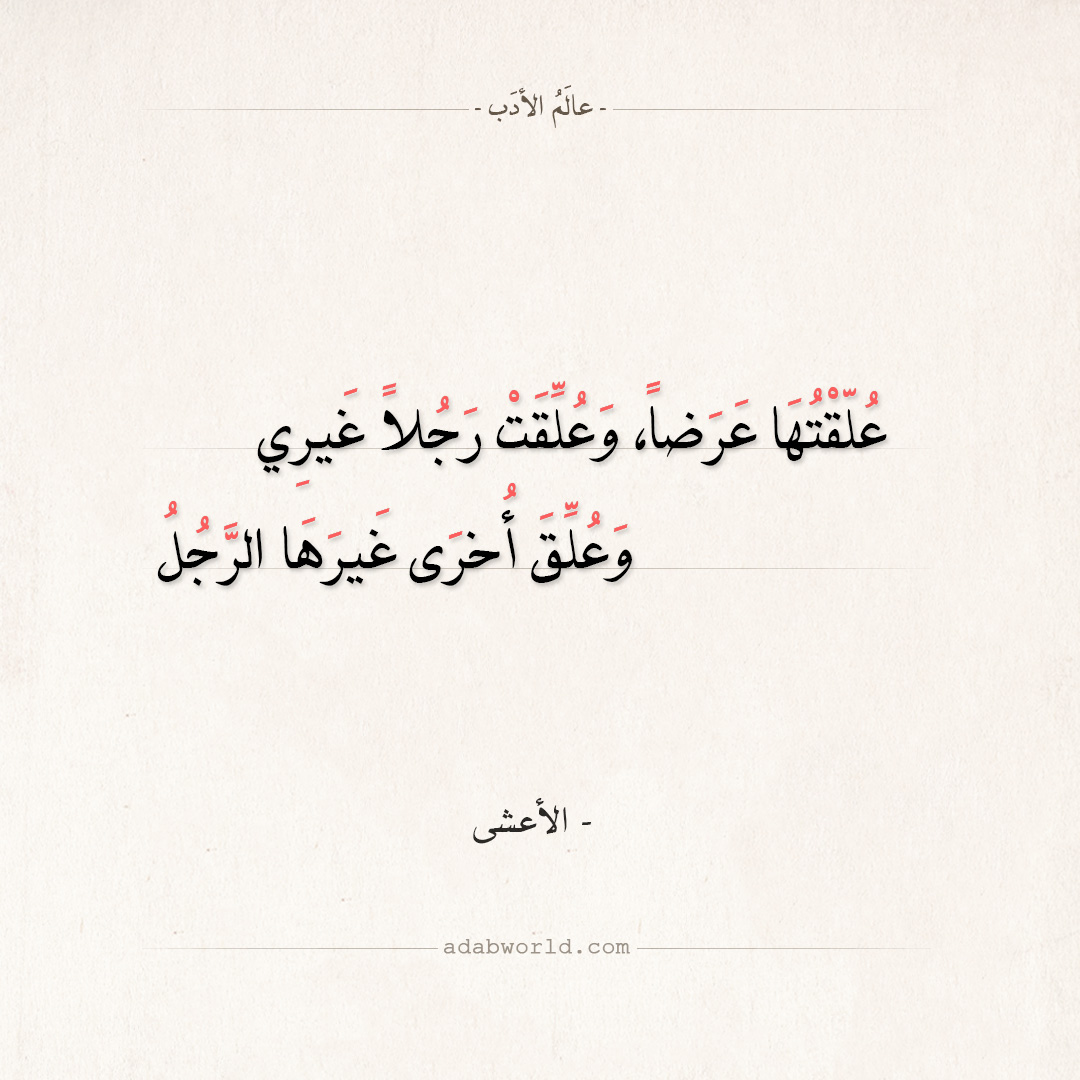 - عالَمُ الأدَب -
عُلّقْتُهَا عَرَضاً، وَعُلِّقَتْ رَجُلاً غَيرِي
وَعُلِّقَ أُخرَى غَيرَهَا الرَّجُلُ
- الأعشى
adabworld.com